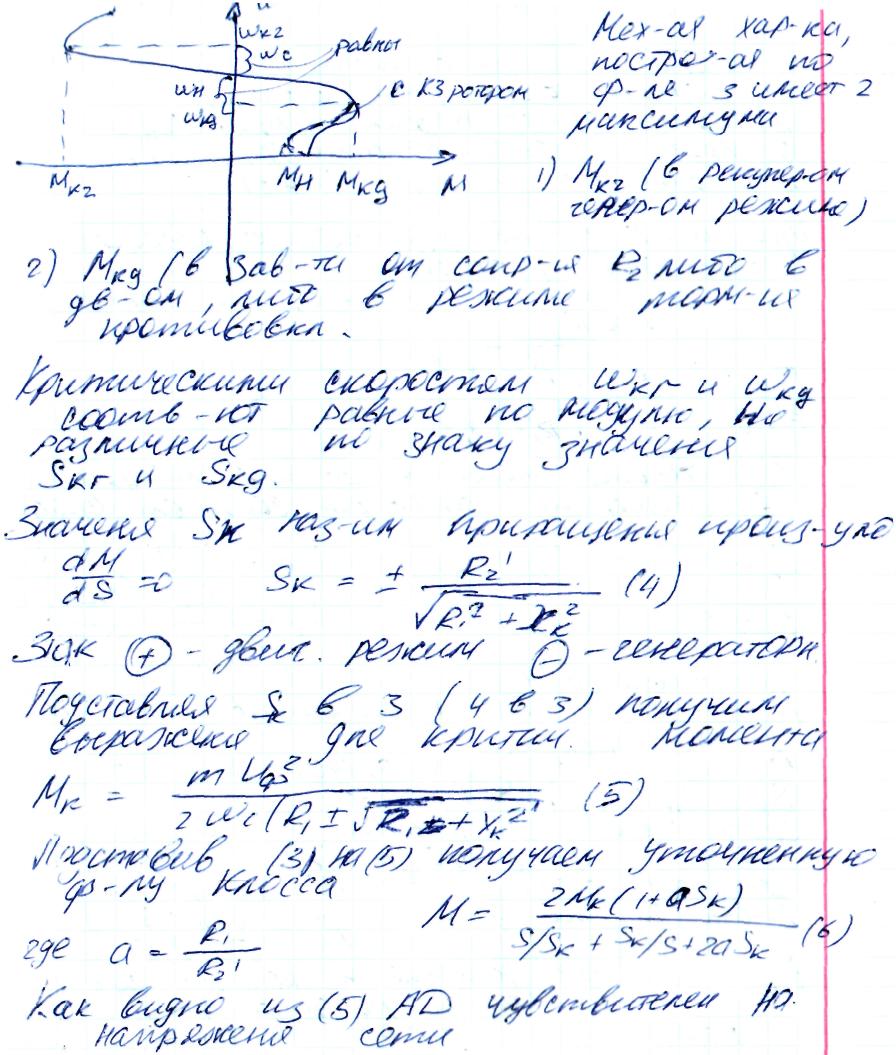 ωкг
ωс
равны
ωн
ωкд
с КЗ ротором
Mкг
Mн
Mкд
M
Мех-ая хар-ка,
постро-ая по
ф-ле 3 имеет 2
максимума
1) Mкг (в рекупер-ом
генер-ом режиме)
2) Mкд (в зав-ти от сопр-ия R2 либо в
дв-ом, либо в режиме торм-ия
противовкл.
Критическими скоростям ωкг и ωкд
соотв-ют равные по модулю, но
различные по знаку значения
Sкг и Sкд.
Значения Sк приращения произ-ую
dM/dS = 0 Sк = ± R2' / √(R1² + Xк²) (4)
Знак (+) - двиг. режим (-) - генераторн.
Подставляя Sк в 3 (4 в 3) получим
выражения для критич. момента
Mк = m Uф² / 2ωс(R1 ± √(R1 + Xк²) (5)
(3) на (5) получаем уточненную
ф-лу Класса
M = 2Mк(1+aSк) / S/Sк + Sк/S + 2aSк (6)
где a = R1 / R2'
Как видно из (5) АД чувствителен на
напряжения сети